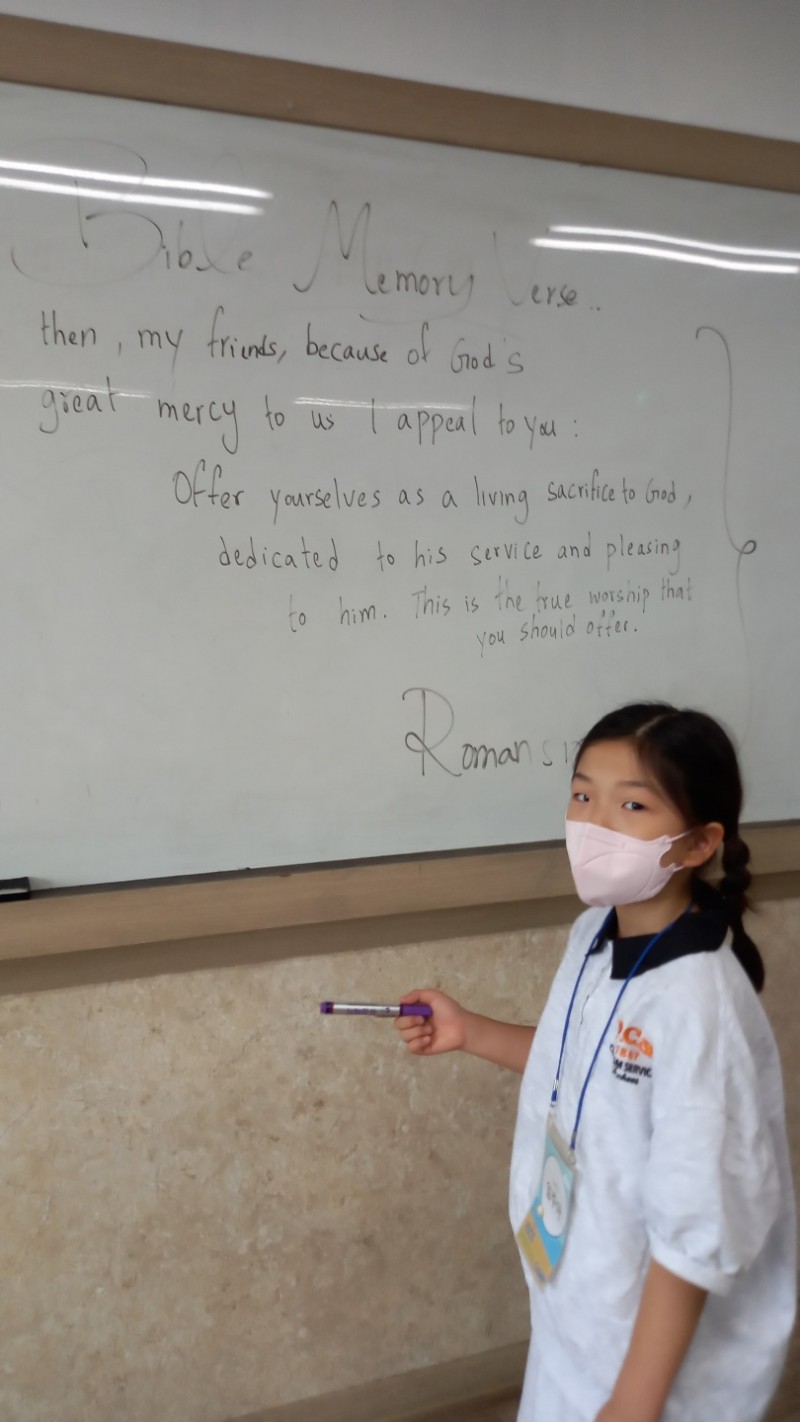 Bible Memory Verse..
then, my friends, because of God's
great mercy to us I appeal to you :
Offer yourselves as a living sacrifice to God,
dedicated to his service and pleasing
to him. This is the true worship that
you should offer.
Romans